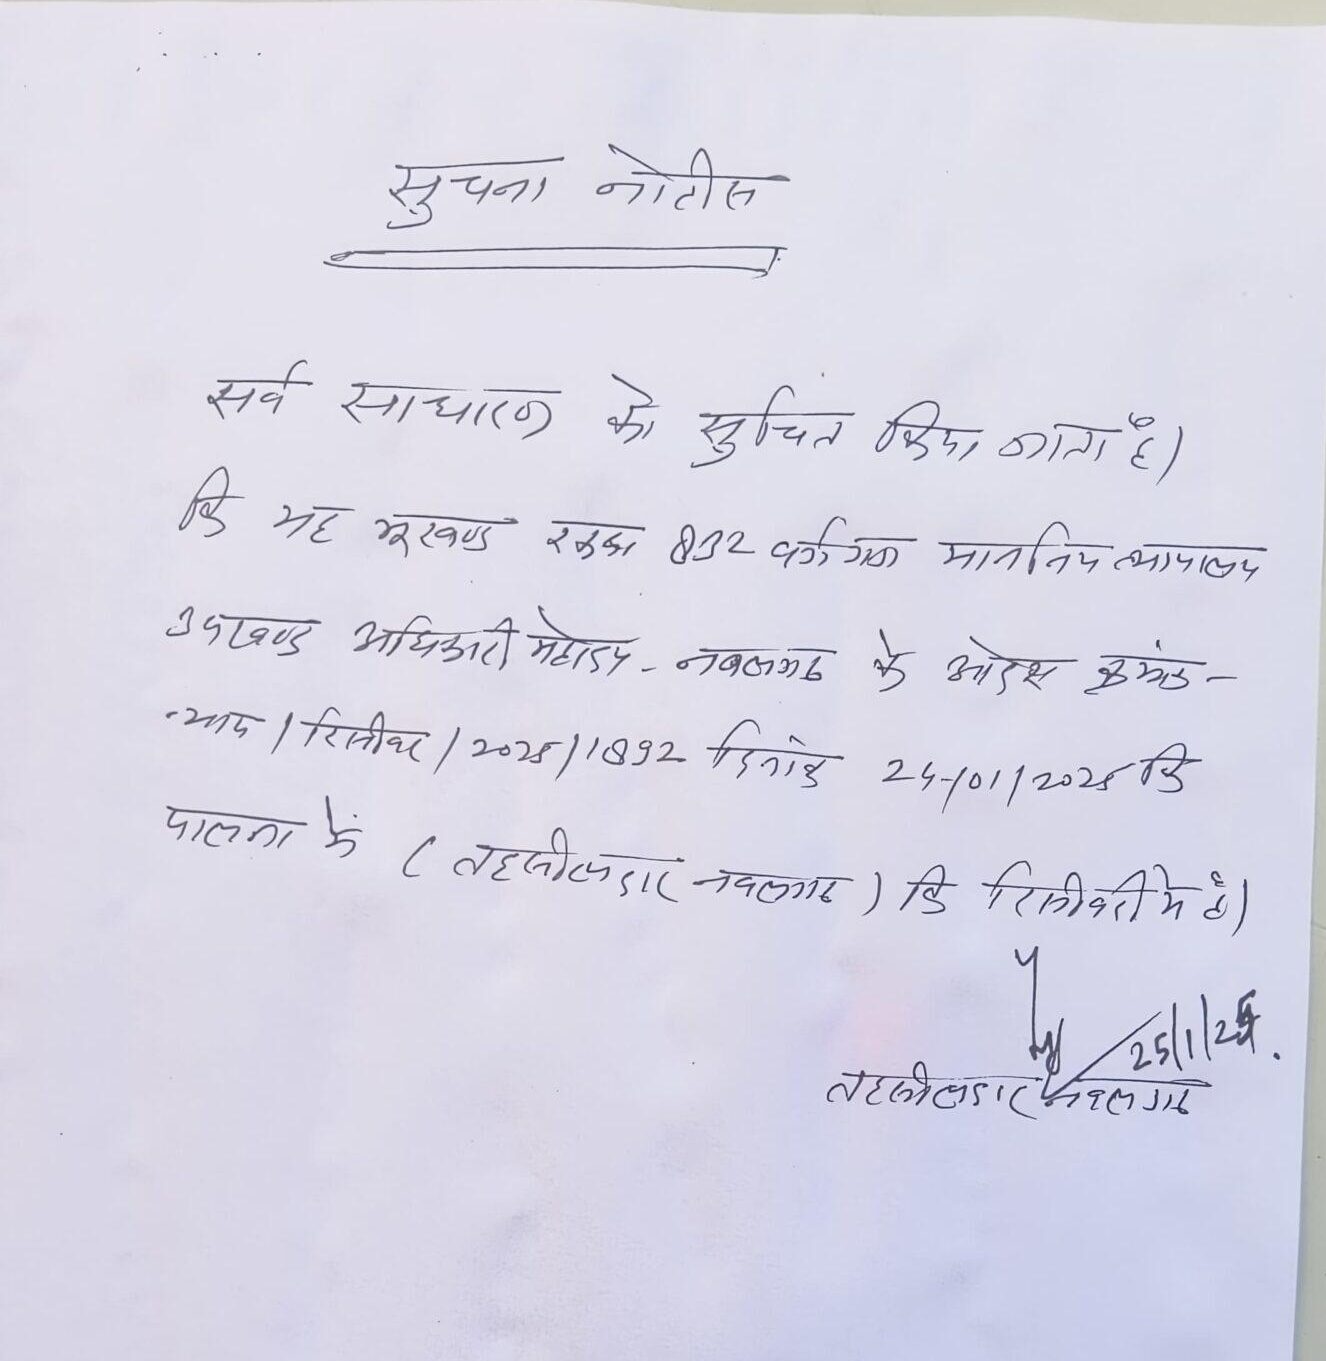 सुचना नोटीस
सर्व साधारण को सुचित किया जाता है।
कि यह भूखण्ड रकबा 832 वर्गगज माननिय न्यायालय
उपखण्ड अधिकारी महोदय - नवलगढ के आदेश क्रमांक -
न्याय / रिसीवर / 2025 / 1892 दिनांक 24/01/2025 कि
पालना में ( तहसीलदार नवलगढ ) कि रिसीवरी मे है।
25/1/25.
तहसीलदार नवलगढ